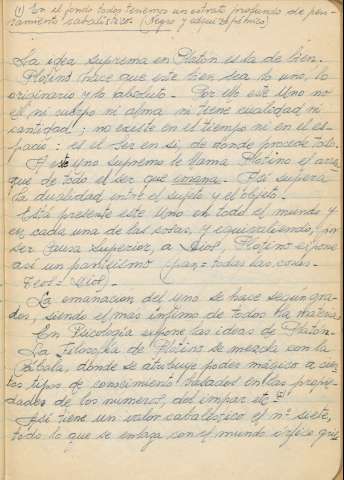 (1) En el fondo todos tenemos un estrato profundo de pen-
samiento cabalístico. (Negro y esquizofrénico)
La idea suprema en Platón es la de bien.
Plotino hace que este bien sea lo uno, lo
originario y lo absoluto. Por ello este Uno no
es ni cuerpo ni alma ni tiene cualidad ni
cantidad; no existe en el tiempo ni en el es-
pacio: es el ser en sí, de donde procede todo.
A este Uno supremo le llama Plotino el
que de todo el ser que emana. Así supera
la dualidad entre el sujeto y el objeto.
Está presente este Uno en todo el mundo y
en cada una de las cosas, y equivaliendo, por
ser causa superior, a Dios. Plotino expone
así un panteísmo (pan = todas las cosas-
Teos = Dios).
La emanación del uno se hace según gra-
dos, siendo el más ínfimo de todos la materia.
En Psicología supone las ideas de Platón.
La Filosofía de Plotino se mezcla con la
Cábala, donde se atribuye poder mágico a cier-
tos tipos de conocimiento basados en las propie-
dades de los números, del impar etc (1)
Así tiene un valor cabalístico el nº siete,
todo lo que se enlaza con el mundo órfico grie-